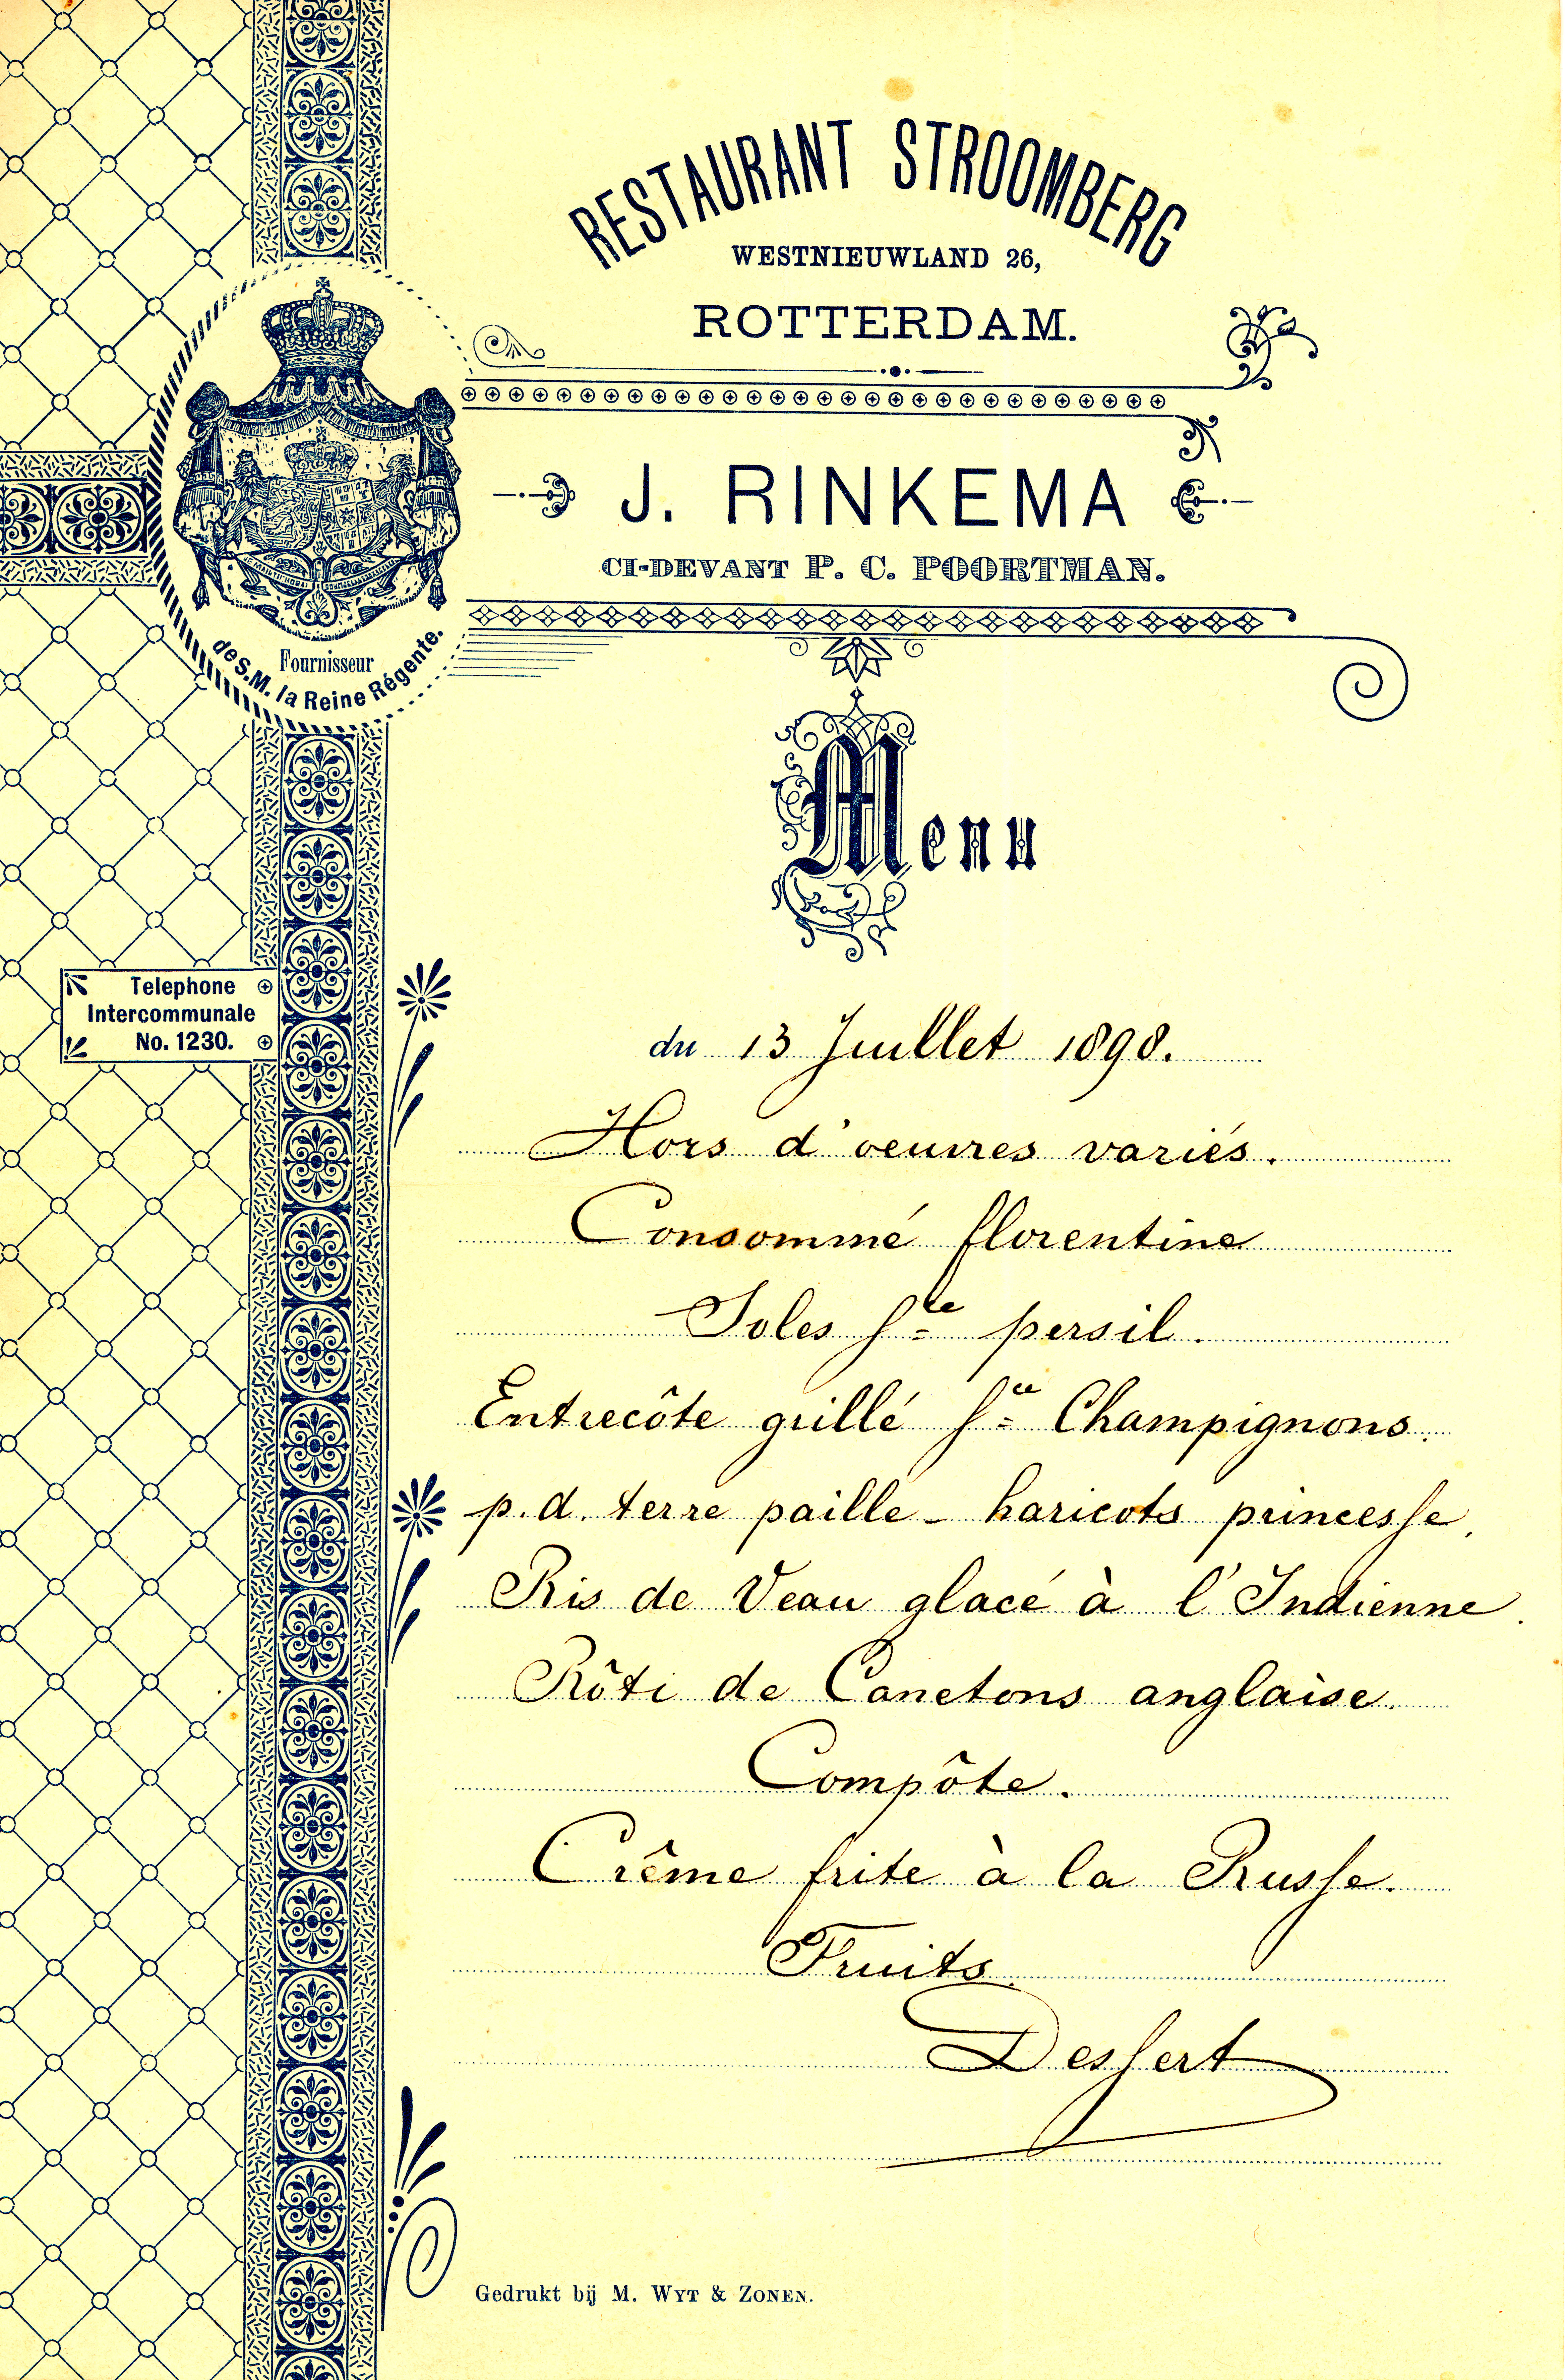 RESTAURANT STROOMBERG
WESTNIEUWLAND 26,
ROTTERDAM.
J. RINKEMA
CI-DEVANT P. C. POORTMAN.
Fournisseur
de S.M. la Reine Régente.
Menu
Telephone
Intercommunale
No. 1230.
du 13 Juillet 1898.
Hors d'oeuvres variés.
Consommé florentine
Soles Sce persil.
Entrecôte grillé Sce Champignons.
p.d. terre paille - haricots princesse.
Ris de Veau glacé à l'Indienne.
Rôti de Canetons anglaise.
Compôte.
Crême frite à la Russe.
Fruits
Dessert
Gedrukt bij M. WYT & ZONEN.